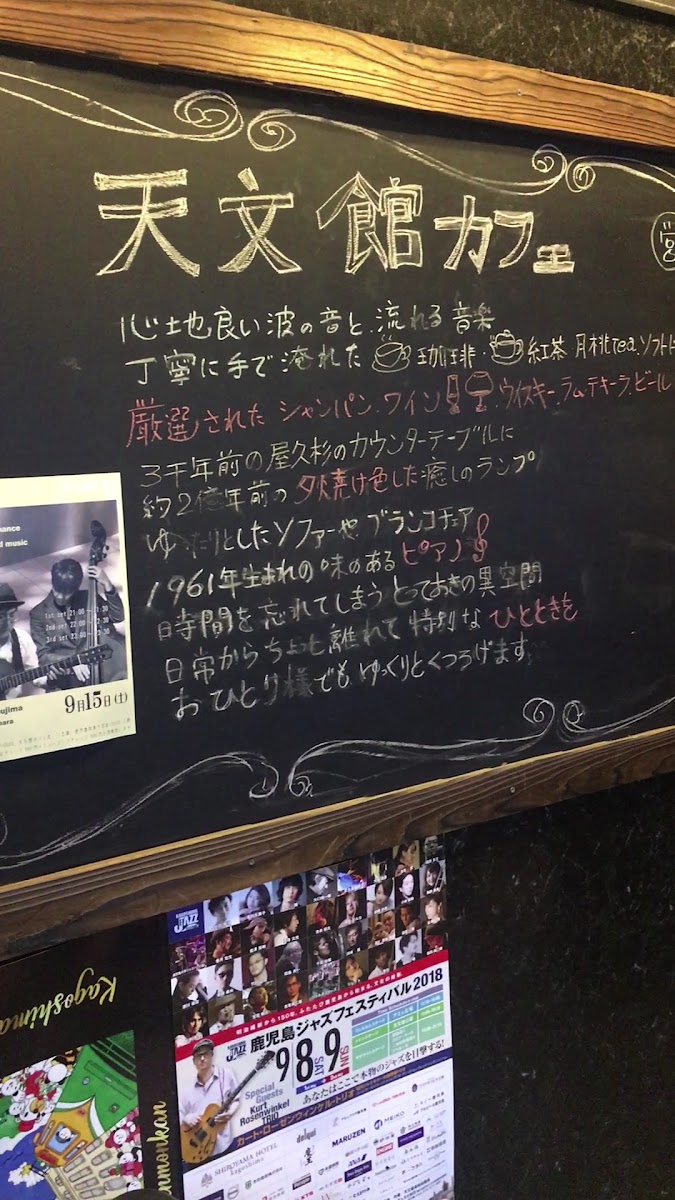 天文館カフェ
営
心地良い波の音と流れる音楽
丁寧に手で淹れた 珈琲・紅茶 月桃tea.ソフトド
厳選された シャンパン.ワイン.ウイスキー.ラム.テキーラ.ビール
3千年前の屋久杉のカウンターテーブルに
約2億年前の夕焼け色した癒しのランプ
ゆったりとしたソファーやブランコチェア
1961年生まれの味のあるピアノ
時間を忘れてしまうとっておきの異空間
日常からちょっと離れて特別なひとときを
おひとり様でもゆっくりとくつろげます
mance
d music
1st set 21:00～21:30
2nd set 22:00～22:30
3rd set 23:00～23:30
ujima
hara
9月15日(土)
Kagoshima
JAZZ
明治維新から150年、ふたたび鹿児島から始まる、文化の維新。
JAZZ
鹿児島ジャズフェスティバル2018
9 8 SAT 9 SUN
あなたはここで本物のジャズを目撃する!
Special Guests
Kurt Rosenwinkel TRIO
カート・ローゼンウィンケル・トリオ
SHIROYAMA HOTEL
kagoshima
daiwa
MARUZEN
MEIKO
ANA
enmonkan